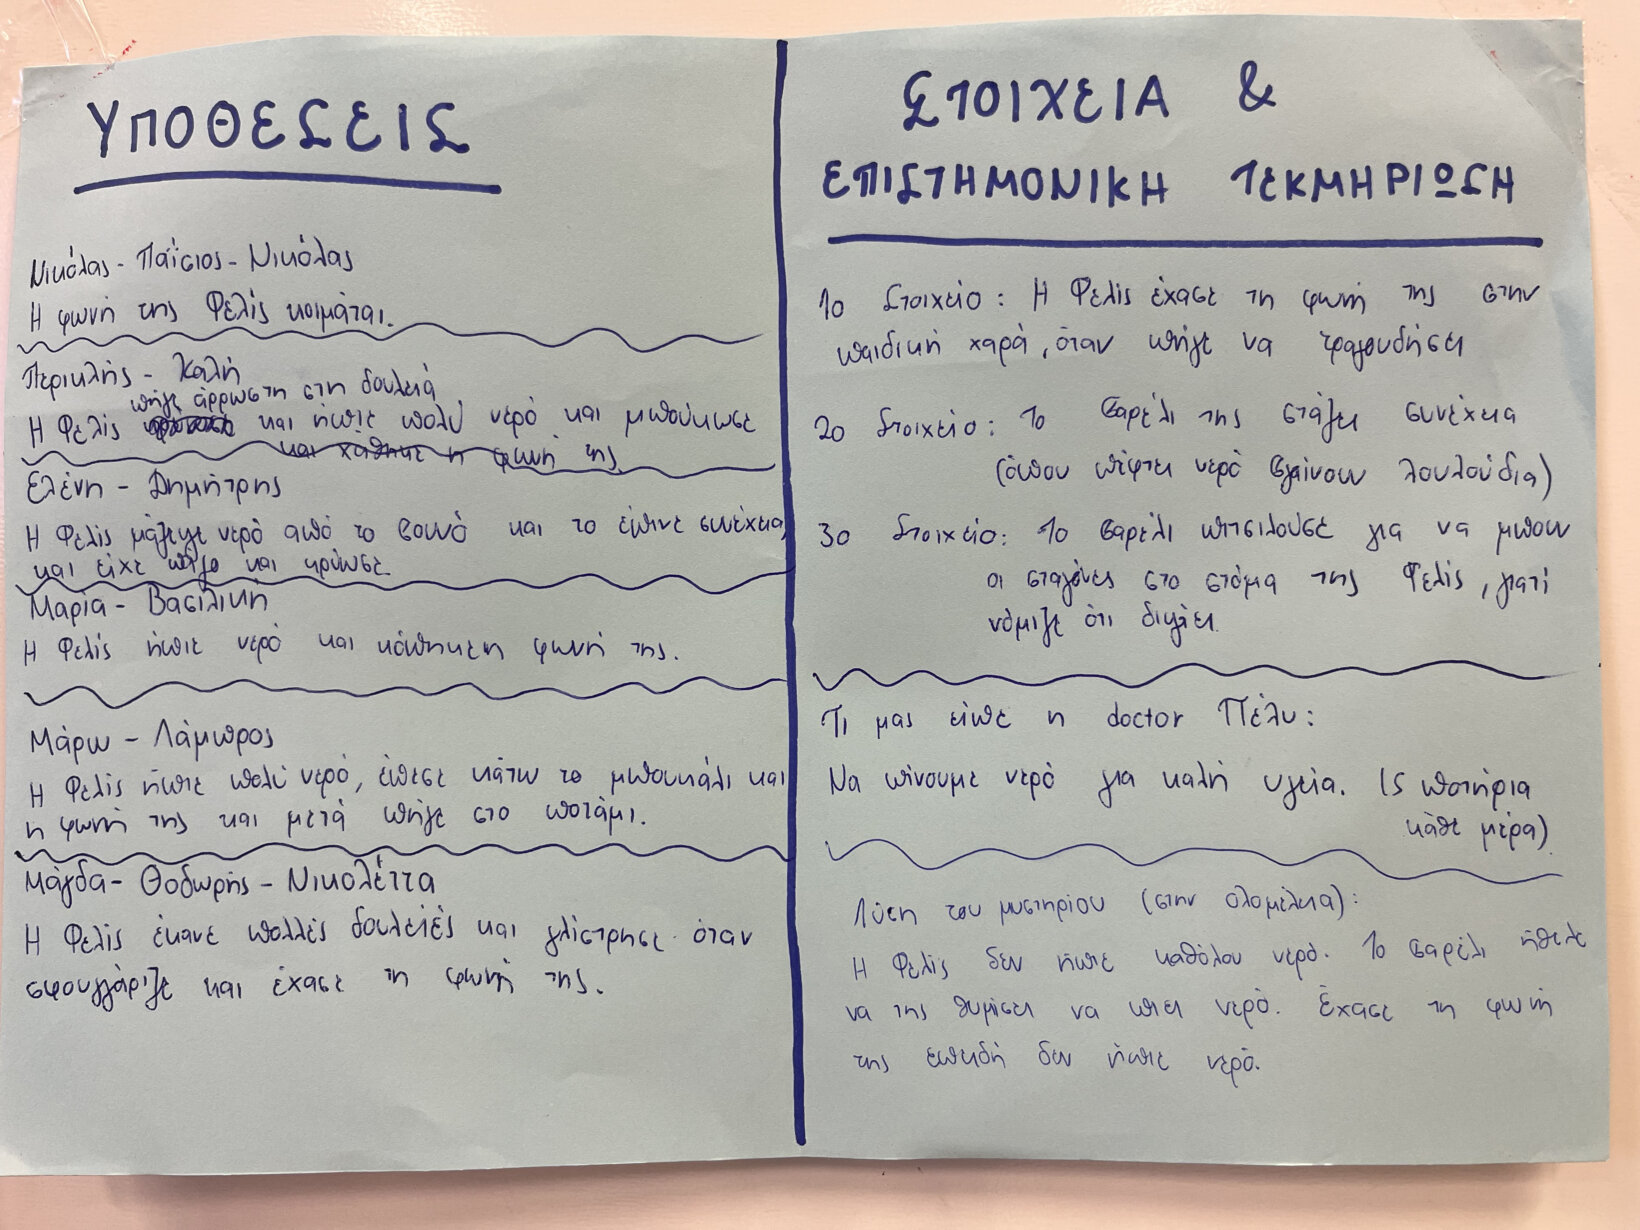 ΥΠΟΘΕΣΕΙΣ
Νικόλας - Παΐσιος - Νικόλας
Η φωνή της Φελίς κοιμάται.
Περικλής - Καλή
πήγε άρρωστη στη δουλειά
Η Φελίς και ήπιε πολύ νερό και μπούκωσε
και χάθηκε η φωνή της
Ελένη - Δημήτρης
Η Φελίς μάζεψε νερό από το βουνό και το έπινε συνέχεια,
και είχε πάγο και κρύωσε.
Μαρία - Βασιλική
Η Φελίς ήπιε νερό και κόπηκε η φωνή της.
Μάρω - Λάμπρος
Η Φελίς ήπιε πολύ νερό, έπεσε κάτω το μπουκάλι και
η φωνή της και μετά πήγε στο ποτάμι.
Μάγδα - Θοδωρής - Νικολέττα
Η Φελίς έκανε πολλές δουλειές και γλίστρησε όταν
σφουγγάριζε και έχασε τη φωνή της.
ΣΤΟΙΧΕΙΑ &
ΕΠΙΣΤΗΜΟΝΙΚΗ ΤΕΚΜΗΡΙΩΣΗ
1ο Στοιχείο: Η Φελίς έχασε τη φωνή της στην
παιδική χαρά, όταν πήγε να τραγουδήσει
2ο Στοιχείο: Το βαρέλι της στάζει συνέχεια
(όπου πέφτει νερό βγαίνουν λουλούδια)
3ο Στοιχείο: Το βαρέλι πιτσιλούσε για να μπουν
οι σταγόνες στο στόμα της Φελίς, γιατί
νόμιζε ότι διψάει.
Τι μας είπε η doctor Πέλυ:
Να πίνουμε νερό για καλή υγεία. (5 ποτήρια
κάθε μέρα)
Λύση του μυστηρίου (στην ολομέλεια):
Η Φελίς δεν ήπιε καθόλου νερό. Το βαρέλι ήθελε
να της θυμίσει να πιει νερό. Έχασε τη φωνή
της επειδή δεν ήπιε νερό.